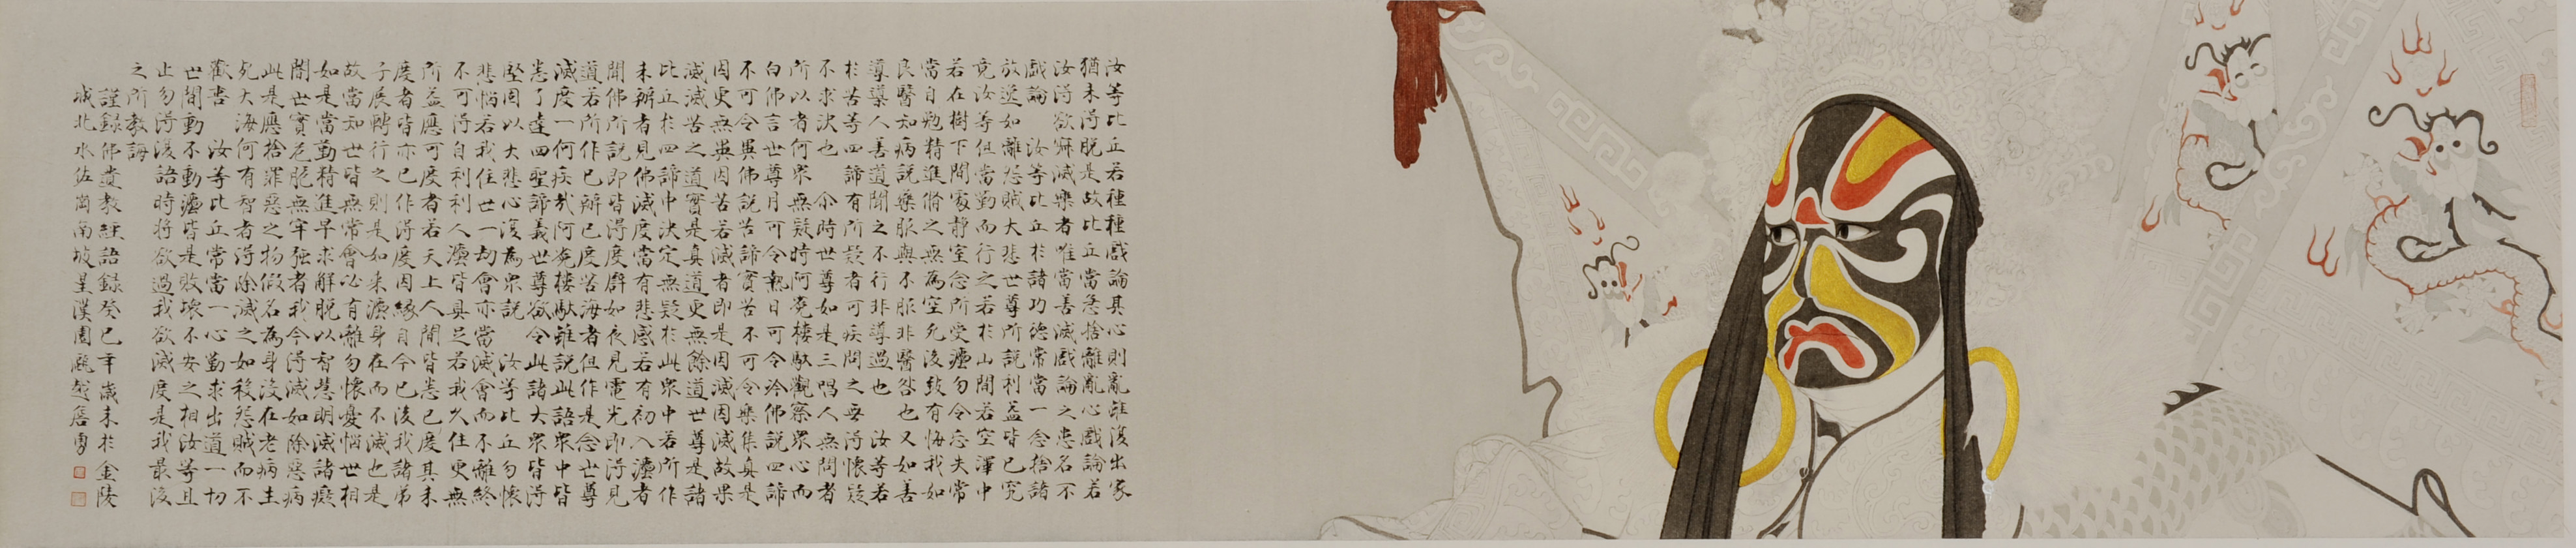 汝等比丘若種種戲論其心則亂雖復出家
猶未得脫是故比丘當急捨離亂心戲論若
汝得欲寂滅樂者唯當善滅戲論之患名不
戲論　汝等比丘於諸功德常當一念捨諸
放逸如離怨賊大悲世尊所說利益皆已究
竟汝等但當勤而行之若於山間若空澤中
若在樹下閒處靜室念所受法勿令忘失常
當自勉精進脩之無為空死後致有悔我如
良醫知病說藥服與不服非醫咎也又如善
導導人善道聞之不行非導過也　汝等若
於苦等四諦有所疑者可疾問之毋得懷疑
不求決也　尒時世尊如是三唱人無問者
所以者何眾無疑時阿㝹樓馱觀察眾心而
白佛言世尊月可令熱日可令冷佛說四諦
不可令異佛說苦諦實苦不可令樂集真是
因更無異因苦若滅者即是因滅因滅故果
滅滅苦之道實是真道更無餘道世尊是諸
比丘於四諦中決定無疑於此眾中若所作
未辦者見佛滅度當有悲感若有初入灋者
聞佛所說即皆得度譬如夜見電光即得見
道若所作已辦已度苦海者但作是念世尊
滅度一何疾哉阿㝹樓馱雖說此語眾中皆
悉了達四聖諦義世尊欲令此諸大眾皆得
堅固以大悲心復為眾說　汝等比丘勿懷
悲惱若我住世一劫會亦當滅會而不離終
不可得自利利人灋皆具足若我久住更無
所益應可度者若天上人間皆悉已度其未
度者皆亦已作得度因緣自今已後我諸弟
子展轉行之則是如來灋身在而不滅也是
故當知世皆無常會必有離勿懷憂惱世相
如是當勤精進早求解脫以智慧明滅諸癡
闇世實危脆無牢強者我今得滅如除惡病
此是應捨罪惡之物假名為身沒在老病生
死大海何有智者得除滅之如殺怨賊而不
歡喜　汝等比丘常當一心勤求出道一切
世間動不動灋皆是敗壞不安之相汝等且
止勿得復語時將欲過我欲滅度是我最後
之所教誨
謹錄佛遺教經語錄癸巳年歲末於金陵
城北水佐崗南坡星漢園